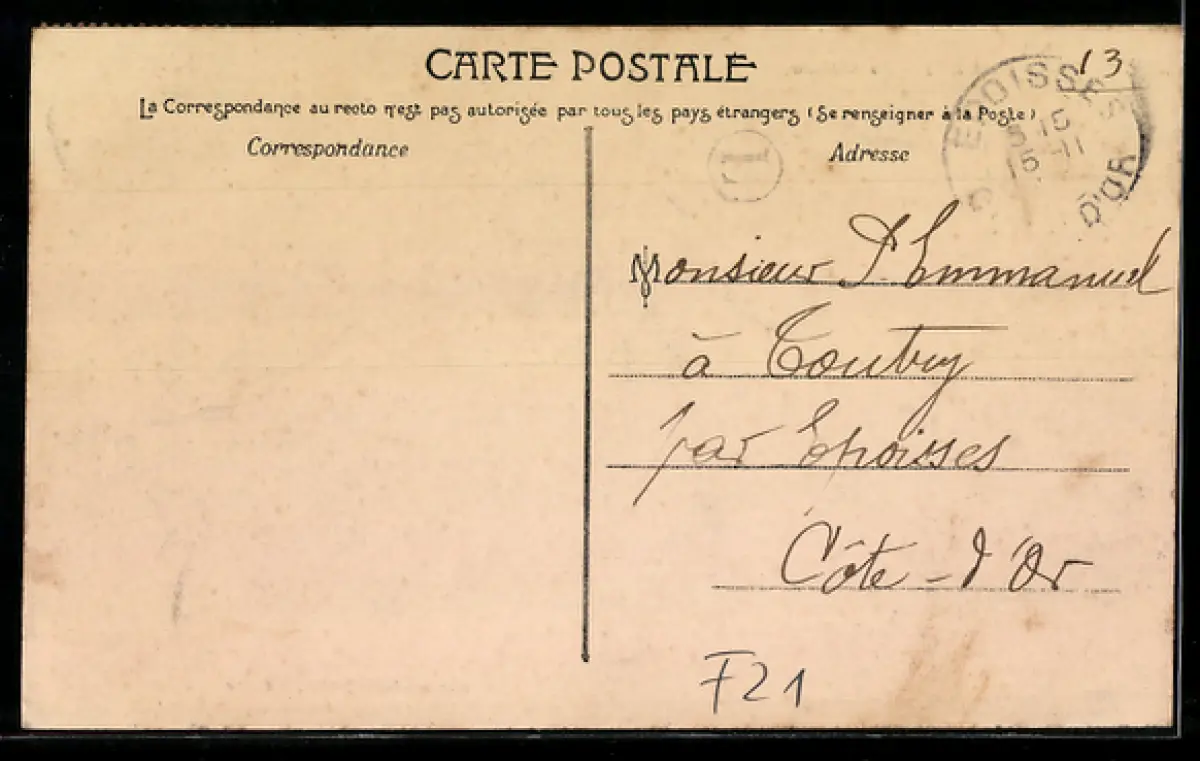 CARTE POSTALE
La Correspondance au recto n'est pas autorisée par tous les pays étrangers (Se renseigner à la Poste)
Correspondance
Adresse
13
EPOISSES
15
15 -11
D'OR
Monsieur P. Emmanuel
à Toutry
par Epoisses
Côte-d'Or
F21